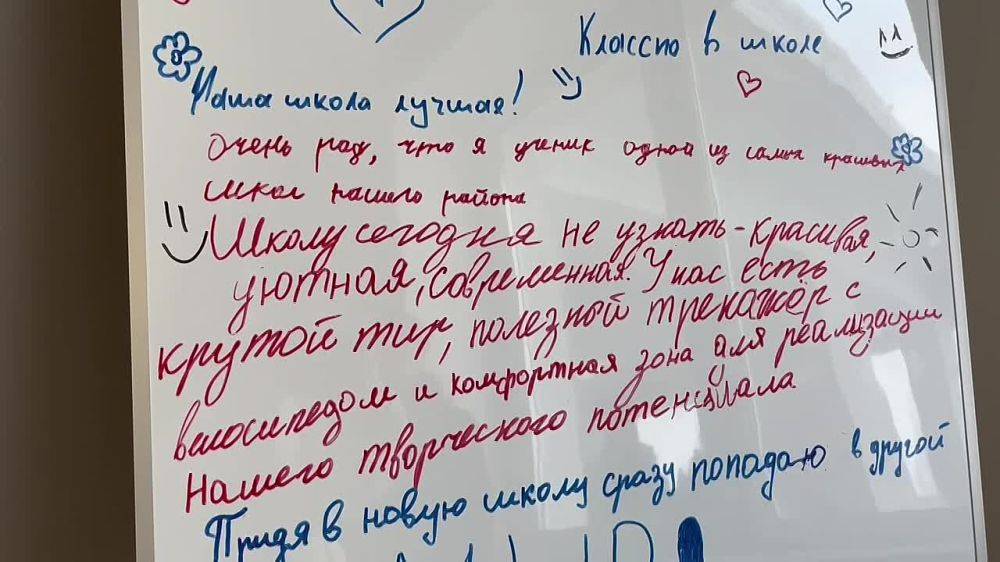 Классно в школе
Наша школа лучшая!
Очень рад, что я ученик одной из самых красивых
школ нашего района
Школу сегодня не узнать - красивая,
уютная, современная. У нас есть
крутой тир, полезной тренажёр с
велосипедом и комфортная зона для реализации
нашего творческого потенциала
Придя в новую школу сразу попадаю в другой